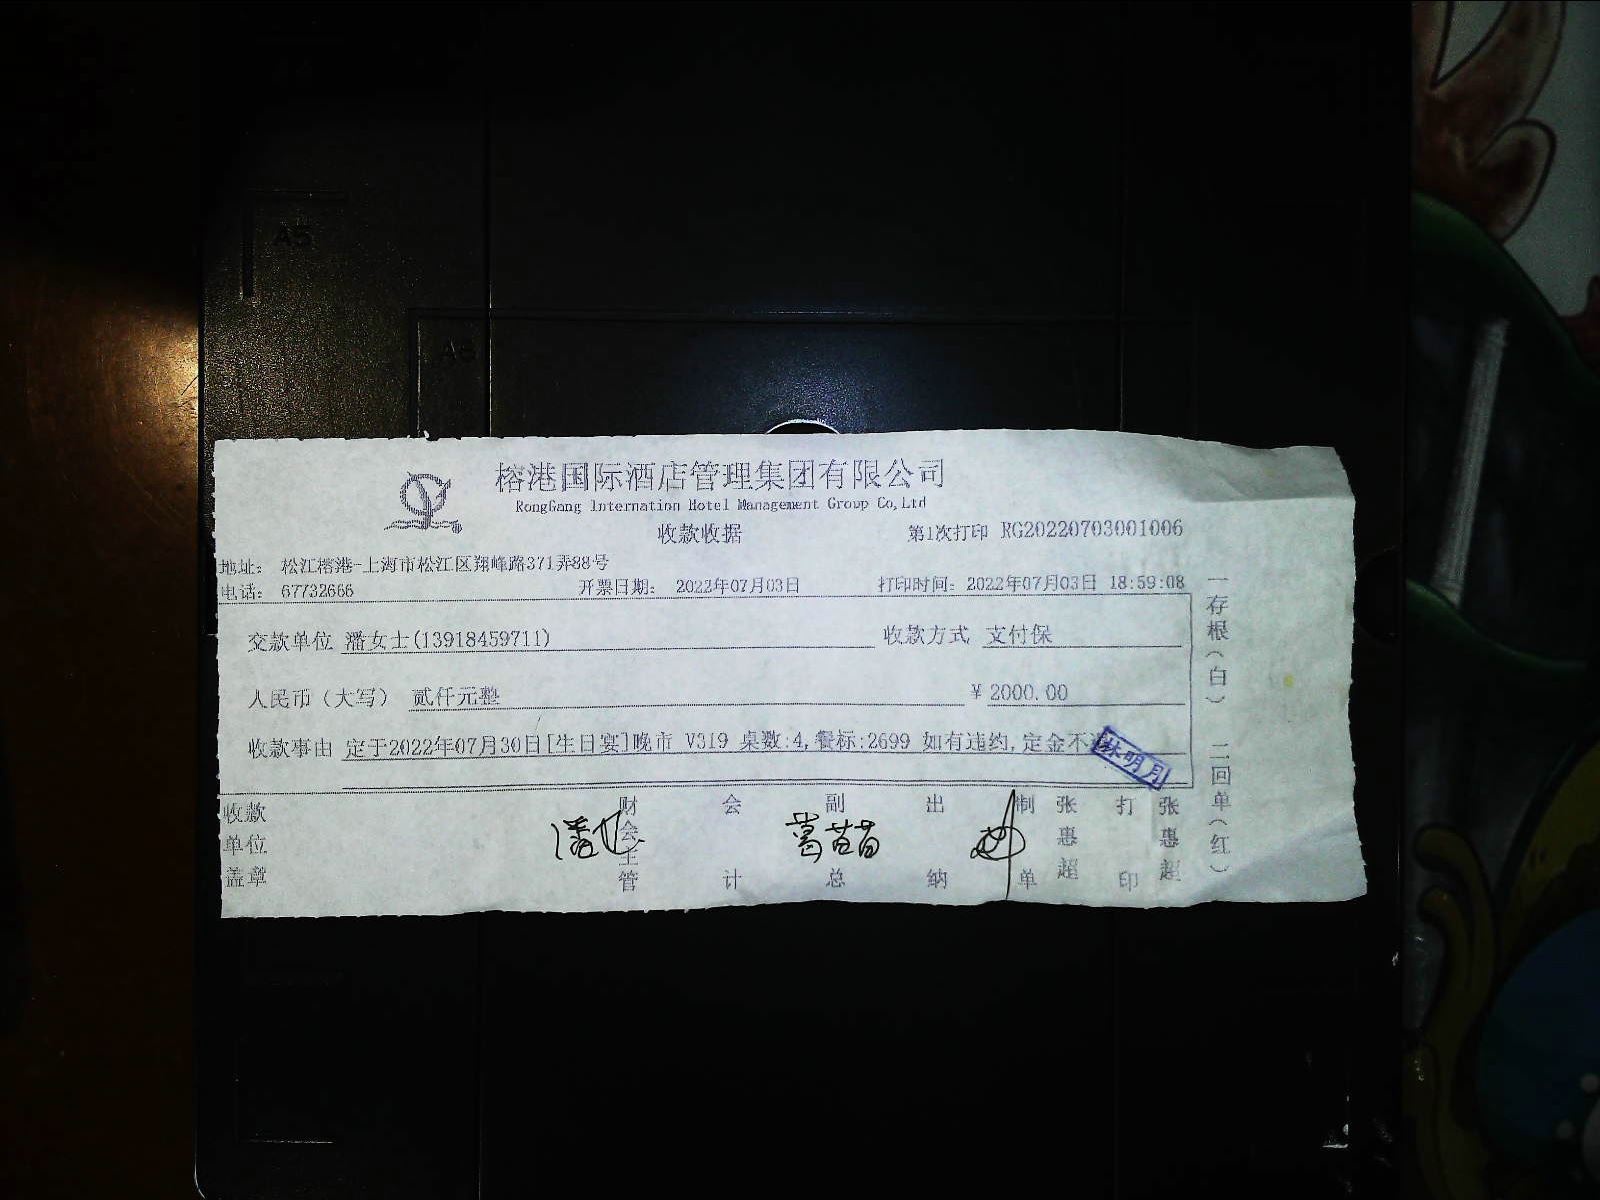 榕港国际酒店管理集团有限公司
RongGang Internation Hotel Management Group Co,Ltd
收款收据
第1次打印 RG20220703001006
地址： 松江榕港-上海市松江区翔峰路371弄88号
电话： 67732666
开票日期： 2022年07月03日
打印时间： 2022年07月03日 18:59:08
交款单位 潘女士(13918459711)
收款方式 支付保
人民币（大写） 贰仟元整
￥ 2000.00
收款事由 定于2022年07月30日[生日宴]晚市 V319 桌数:4,餐标:2699 如有违约,定金不
林明月
收款单位盖章
财会主管
会计
副总
葛苗苗
出纳
制单
张惠超
打印
张惠超
一存根（白） 二回单（红）
A5
A6